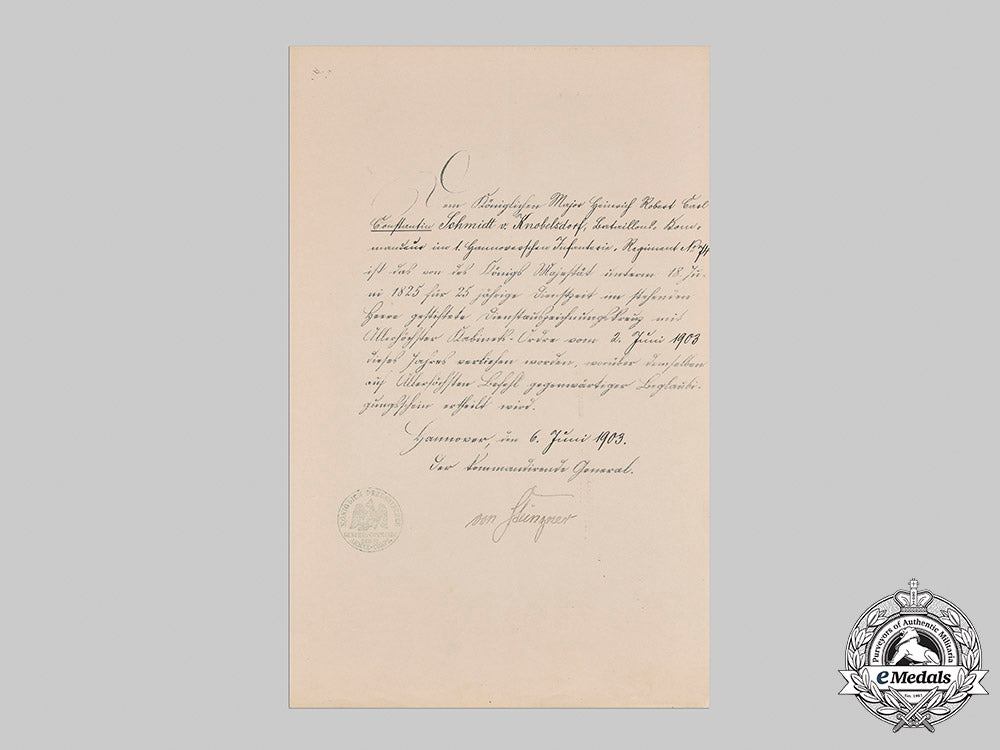 Dem Königlichen Major Heinrich Robert Carl
Constantin Schmidt v. Knobelsdorf, Bataillons-Kom-
mandeur im 1. Hannoverschen Infanterie-Regiment No 74
ist das von des Königs Majestät unterm 18. Ju-
ni 1825 für 25 jährige Dienstzeit im stehenden
Heere gestiftete Dienstauszeichnungskreuz mit
Allerhöchster Kabinets-Ordre vom 2. Juni 1903
dieses Jahres verliehen worden, worüber demselben
auf Allerhöchsten Befehl gegenwärtiger Beglaubi-
gungsschein ertheilt wird.
Hannover, den 6. Juni 1903.
Der kommandirende General.
von Stünzner
KÖNIGLICH PREUSSISCHES
Purveyors of Authentic Militaria
eMedals